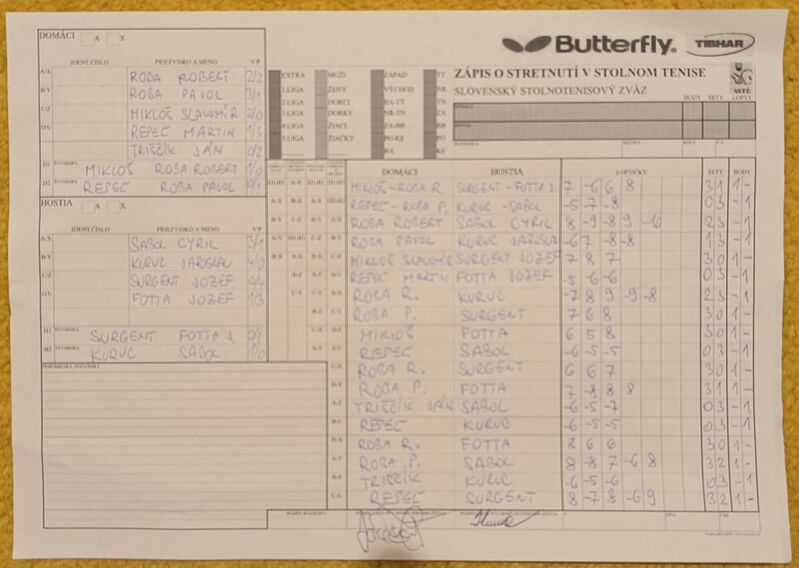 DOMÁCI A X
Butterfly TIBHAR
IDENT. ČÍSLO PRIEZVISKO A MENO V/P
ZÁPIS O STRETNUTÍ V STOLNOM TENISE
SLOVENSKÝ STOLNOTENISOVÝ ZVÄZ
SSTZ
BODY SETY LOPTY
EXTRA MUŽI ZÁPAD TT
1.LIGA ŽENY VÝCHOD NR
2.LIGA DORCI BA-TT TN
3.LIGA DORKY NR-TN ZA
4.LIGA ŽIACI ZA-BB
5.LIGA ŽIAČKY PO-KE PO
BA KE
A/X ROBA ROBERT 2/2
B/Y ROBA PAVOL 3/1
C/Z MIKLOŠ SLAVOMÍR 2/0
D/U REPEĽ MARTIN 1/3
TRIŠČÍK JÁN 0/2
D1 ŠTVORHRA MIKLOŠ ROBA ROBERT 1/0
D2 ŠTVORHRA REPEĽ ROBA PAVOL 0/1
HOSTIA A X
IDENT. ČÍSLO PRIEZVISKO A MENO V/P
A/X SABOL CYRIL 3/1
B/Y KURUC JAROSLAV 4/0
C/Z SURGENT JOZEF 0/4
D/U FOTTA JOZEF 1/3
H1 ŠTVORHRA SURGENT FOTTA J. 0/1
H2 ŠTVORHRA KURUC SABOL 1/0
DOMÁCI HOSTIA LOPTIČKY SETY BODY
MIKLOŠ-ROBA R SURGENT-FOTTA J. 7 -6 6 8 3 1 1 -
REPEĽ-ROBA P. KURUC-SABOL -5 -7 -8 0 3 - 1
ROBA ROBERT SABOL CYRIL 8 -9 -8 9 -10 2 3 - 1
ROBA PAVOL KURUC JAROSLAV -6 7 -8 -8 1 3 - 1
MIKLOŠ SLAVOMÍR SURGENT JOZEF 7 8 7 3 0 1 -
REPEĽ MARTIN FOTTA JOZEF -5 -6 -6 0 3 - 1
ROBA R. KURUC -7 8 9 -9 -8 2 3 - 1
ROBA P. SURGENT 7 6 8 3 0 1 -
MIKLOŠ FOTTA 6 5 8 3 0 1 -
REPEĽ SABOL -6 -5 -5 0 3 - 1
ROBA R. SURGENT 6 6 7 3 0 1 -
ROBA P. FOTTA 7 -8 8 8 3 1 1 -
TRIŠČÍK JÁN SABOL -6 -5 -7 0 3 - 1
REPEĽ KURUC -6 -5 -5 0 3 - 1
ROBA R. FOTTA 8 6 6 3 0 1 -
ROBA P. SABOL 8 -8 7 -6 8 3 2 1 -
TRIŠČÍK KURUC -6 -5 -6 0 3 - 1
REPEĽ SURGENT 8 -7 8 -6 9 3 2 1 -